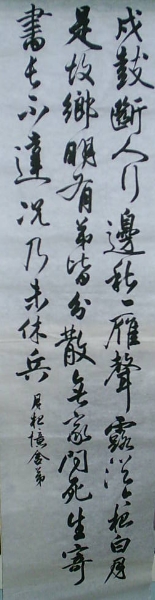 戍鼓斷人行邊秋一雁聲露從今夜白月
是故鄉明有弟皆分散無家問死生寄
書長不達況乃未休兵
月夜憶舍弟